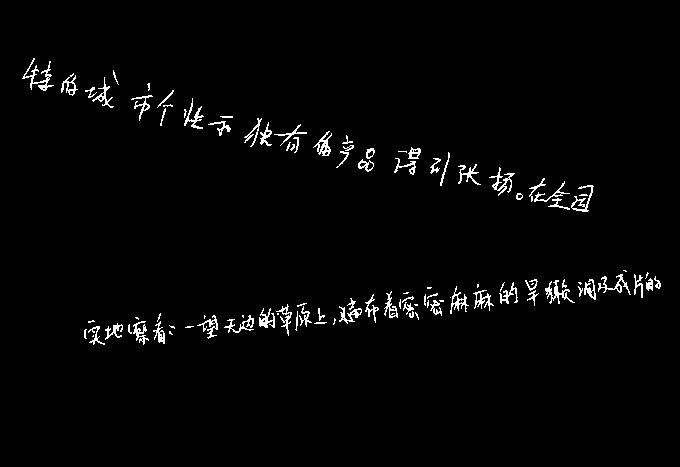 特的城市个性和独有的产品得到张扬。在全国
实地察看:一望无边的草原上,遍布着密密麻麻的旱獭洞及成片的